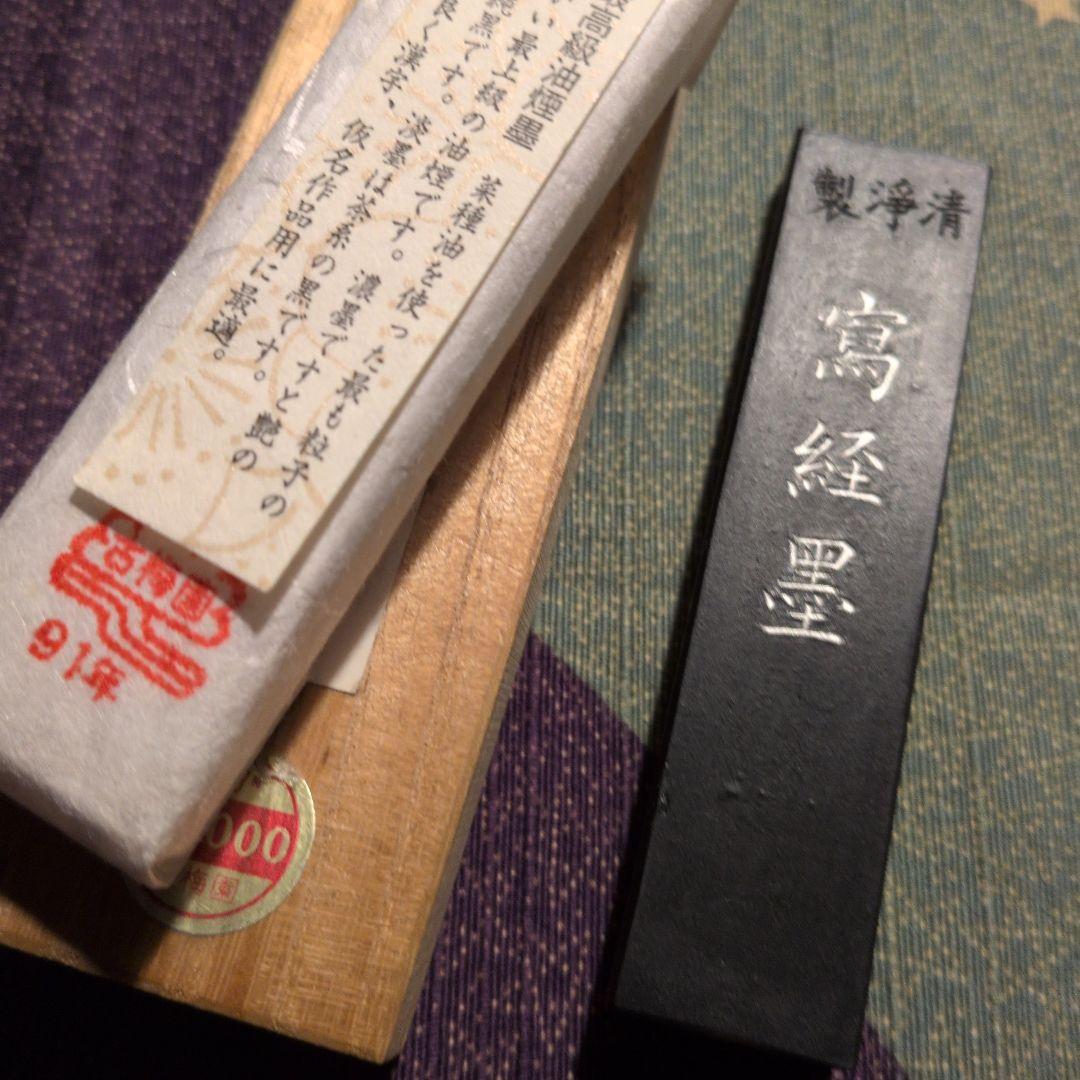 最高級油煙墨
菜種油を使った最も粒子の
い最上級の油煙です。濃墨ですと艶の
純黒です。淡墨は茶系の黒です。
良く漢字、仮名作品用に最適。
古梅園
91年
000
梅園
清淨製
寫経墨